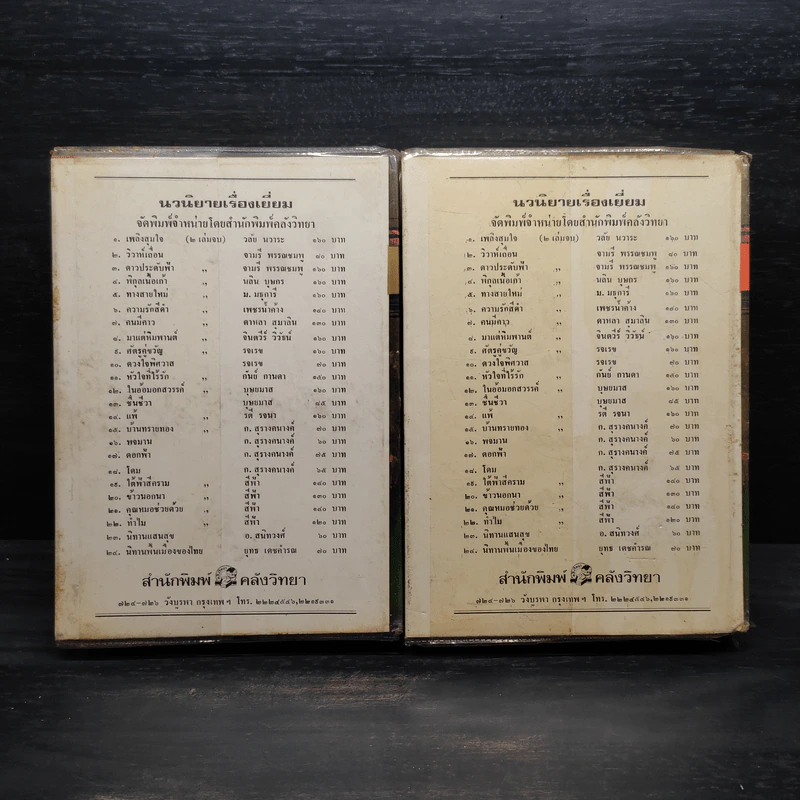 นวนิยายเรื่องเยี่ยม
จัดพิมพ์จำหน่ายโดยสำนักพิมพ์คลังวิทยา
๑. เพลิงสุมใจ (๒ เล่มจบ) วลัย นวาระ ๑๖๐ บาท
๒. วิวาห์เลื่อน จามรี พรรณชมพู ๘๐ บาท
๓. ดาวประดับฟ้า ,, จามรี พรรณชมพู ๑๖๐ บาท
๔. พิกุลเนื้อเก้า ,, นลิน บุษกร ๑๖๐ บาท
๕. ทางสายใหม่ ,, ม. มธุการี ๑๖๐ บาท
๖. ความรักสีดำ ,, เพชรน้ำค้าง ๑๔๐ บาท
๗. คนมีคาว ,, ดาหลา สุมาลิน ๑๓๐ บาท
๘. มาแต่หิมพานต์ ,, จินตวีร์ วิวัธน์ ๑๖๐ บาท
๙. ศัตรูคู่ขวัญ ,, รจเรข ๑๖๐ บาท
๑๐. ดวงใจพิศวาส รจเรข ๗๐ บาท
๑๑. หัวใจที่ไร้รัก ,, กันย์ กานดา ๑๕๐ บาท
๑๒. ในอ้อมอกสวรรค์ ,, บุษยมาส ๑๖๐ บาท
๑๓. ชื่นชีวา บุษยมาส ๘๕ บาท
๑๔. แพ้ ,, รตี รจนา ๑๖๐ บาท
๑๕. บ้านทรายทอง ,, ก. สุรางคนางค์ ๗๐ บาท
๑๖. พจมาน ก. สุรางคนางค์ ๖๐ บาท
๑๗. ดอกฟ้า ก. สุรางคนางค์ ๗๕ บาท
๑๘. โดม ก. สุรางคนางค์ ๖๕ บาท
๑๙. ใต้ฟ้าสีคราม ,, สีฟ้า ๑๔๐ บาท
๒๐. ข้าวนอกนา ,, สีฟ้า ๑๓๐ บาท
๒๑. คุณหมอช่วยด้วย ,, สีฟ้า ๑๔๐ บาท
๒๒. ทำไม ,, สีฟ้า ๑๒๐ บาท
๒๓. นิทานแสนสุข อ. สนิทวงศ์ ๖๐ บาท
๒๔. นิทานพื้นเมืองของไทย ยุทธ เดชคำรณ ๗๐ บาท
สำนักพิมพ์ คลังวิทยา
๗๒๔-๗๒๖ วังบูรพา กรุงเทพ ฯ โทร. ๒๒๒๔๕๔๖,๒๒๑๕๓๓๑
นวนิยายเรื่องเยี่ยม
จัดพิมพ์จำหน่ายโดยสำนักพิมพ์คลังวิทยา
๑. เพลิงสุมใจ (๒ เล่มจบ) วลัย นวาระ ๑๖๐ บาท
๒. วิวาห์เลื่อน จามรี พรรณชมพู ๘๐ บาท
๓. ดาวประดับฟ้า ,, จามรี พรรณชมพู ๑๖๐ บาท
๔. พิกุลเนื้อเก้า ,, นลิน บุษกร ๑๖๐ บาท
๕. ทางสายใหม่ ,, ม. มธุการี ๑๖๐ บาท
๖. ความรักสีดำ ,, เพชรน้ำค้าง ๑๔๐ บาท
๗. คนมีคาว ,, ดาหลา สุมาลิน ๑๓๐ บาท
๘. มาแต่หิมพานต์ ,, จินตวีร์ วิวัธน์ ๑๖๐ บาท
๙. ศัตรูคู่ขวัญ ,, รจเรข ๑๖๐ บาท
๑๐. ดวงใจพิศวาส รจเรข ๗๐ บาท
๑๑. หัวใจที่ไร้รัก ,, กันย์ กานดา ๑๕๐ บาท
๑๒. ในอ้อมอกสวรรค์ ,, บุษยมาส ๑๖๐ บาท
๑๓. ชื่นชีวา บุษยมาส ๘๕ บาท
๑๔. แพ้ ,, รตี รจนา ๑๖๐ บาท
๑๕. บ้านทรายทอง ,, ก. สุรางคนางค์ ๗๐ บาท
๑๖. พจมาน ก. สุรางคนางค์ ๖๐ บาท
๑๗. ดอกฟ้า ก. สุรางคนางค์ ๗๕ บาท
๑๘. โดม ก. สุรางคนางค์ ๖๕ บาท
๑๙. ใต้ฟ้าสีคราม ,, สีฟ้า ๑๔๐ บาท
๒๐. ข้าวนอกนา ,, สีฟ้า ๑๓๐ บาท
๒๑. คุณหมอช่วยด้วย ,, สีฟ้า ๑๔๐ บาท
๒๒. ทำไม ,, สีฟ้า ๑๒๐ บาท
๒๓. นิทานแสนสุข อ. สนิทวงศ์ ๖๐ บาท
๒๔. นิทานพื้นเมืองของไทย ยุทธ เดชคำรณ ๗๐ บาท
สำนักพิมพ์ คลังวิทยา
๗๒๔-๗๒๖ วังบูรพา กรุงเทพ ฯ โทร. ๒๒๒๔๕๔๖,๒๒๑๕๓๓๑